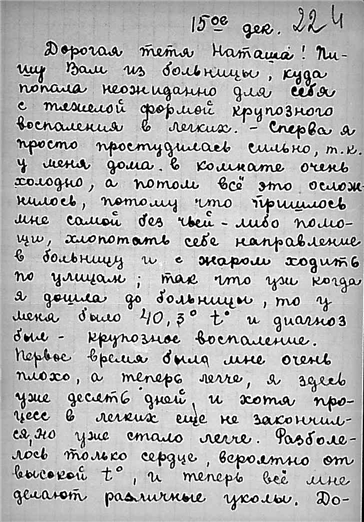 15ое дек. 224
Дорогая тетя Наташа! Пи-
шу Вам из больницы, куда
попала неожиданно для себя
с тяжелой формой крупозного
воспаления в легких. - Сперва я
просто простудилась сильно, т.к.
у меня дома в комнате очень
холодно, а потом всё это ослож-
нилось, потому что пришлось
мне самой без чьей-либо помо-
щи, хлопотать себе направление
в больницу и с жаром ходить
по улицам; так что уж когда
я дошла до больницы, то у
меня было 40,3° t° и диагноз
был - крупозное воспаление.
Первое время было мне очень
плохо, а теперь легче, я здесь
уже десять дней, и хотя про-
цесс в легких еще не закончил-
ся, но уже стало легче. Разболе-
лось только сердце, вероятно от
высокой t°, и теперь всё мне
делают различные уколы. До-